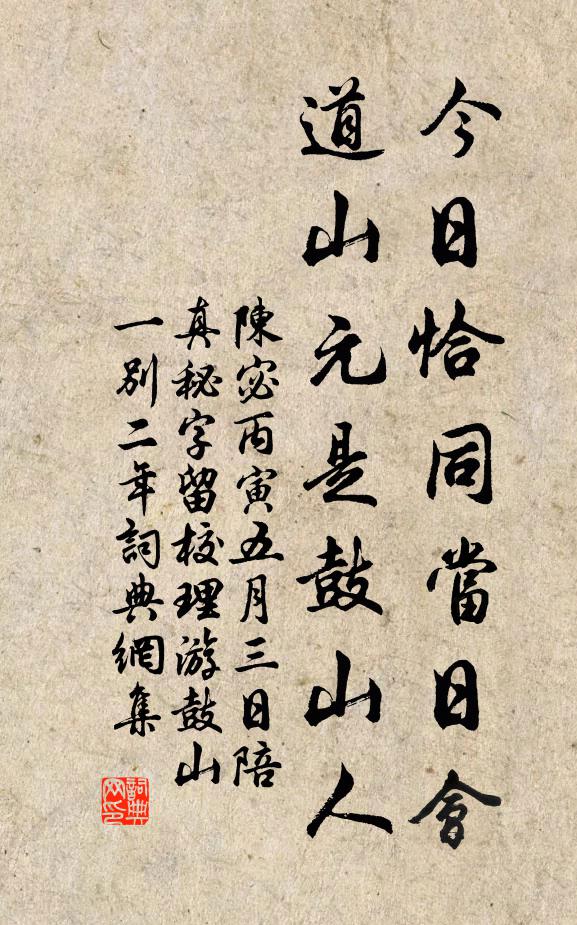 今日恰同當日會
道山元是鼓山人
陳宓丙寅五月三日陪
真秘字留校理游鼓山
一別二年詞典網集
詞典网印